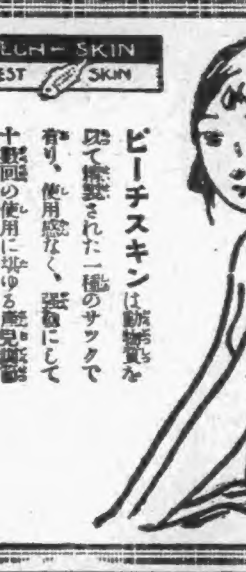 ECH-SKIN
EST SKIN
ピーチスキンは動物質を
以て精製された一種のサックで
有り、使用感なく、強靱にして
十數回の使用に堪ゆる産児調節